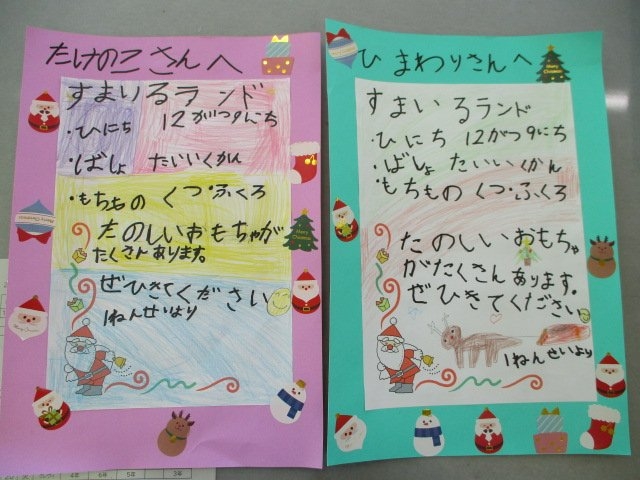 たけのこさんへ
すまいるランド
・ひにち 12がつ9にち
・ばしょ たいいくかん
・もちもの くつ・ふくろ
たのしいおもちゃが
たくさんあります。
ぜひきてください
1ねんせいより
ひまわりさんへ
すまいるランド
・ひにち 12がつ9にち
・ばしょ たいいくかん
・もちもの くつ・ふくろ
たのしいおもちゃ
がたくさんあります。
ぜひきてください
1ねんせいより